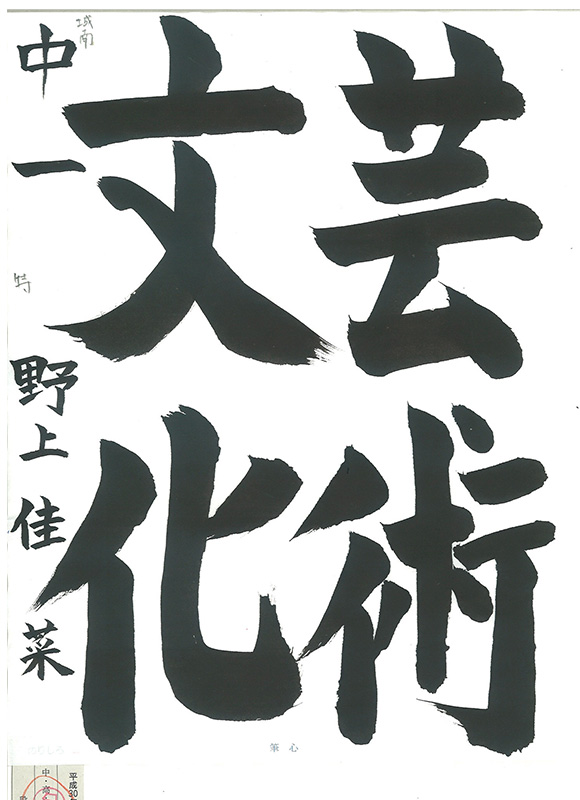 芸術
文化
城南
中一
特
野上佳菜
筆心
平成30
中・高